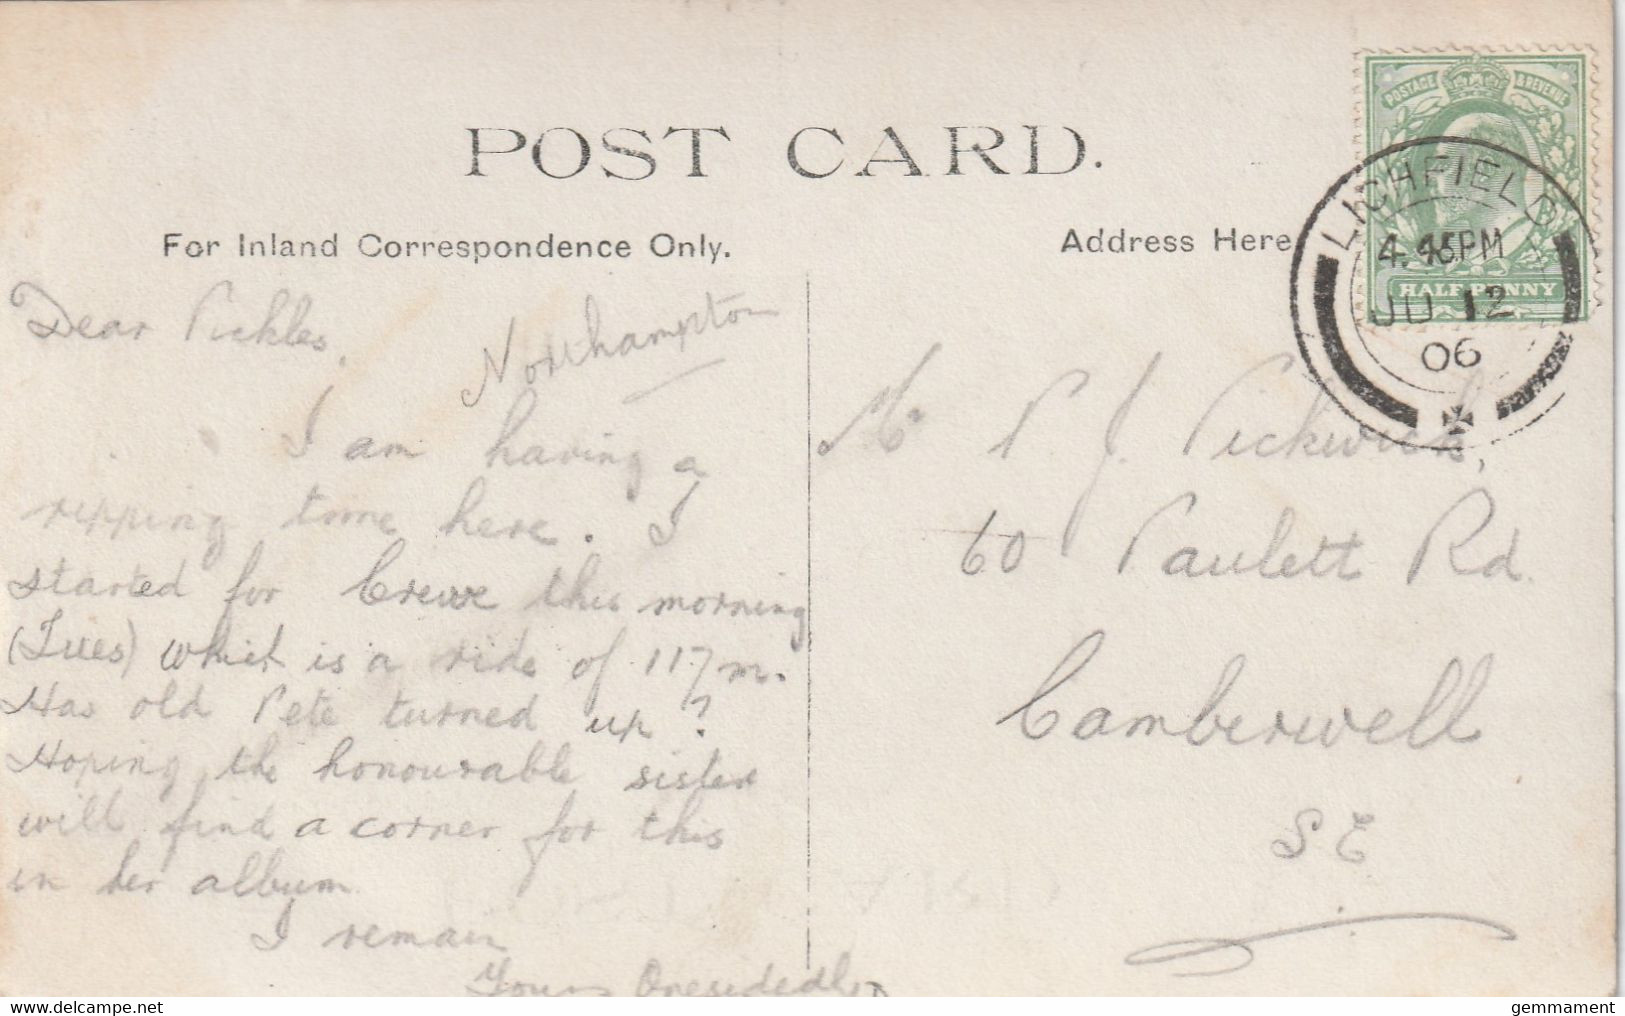 POST CARD.
For Inland Correspondence Only.
Address Here
POSTAGE & REVENUE
HALF PENNY
LICHFIELD
4.45PM
JU 12
06
Dear Pickles,
Northampton
I am having a
ripping time here. I
started for Crewe this morning
(Tues) which is a ride of 117 m.
Has old Pete turned up?
Hoping the honourable sister
will find a corner for this
in her album
I remain
Yours Onesidedly
Mr P. J. Pickwick,
60 Paulett Rd.
Camberwell
S E
delcampe.net
gemmament